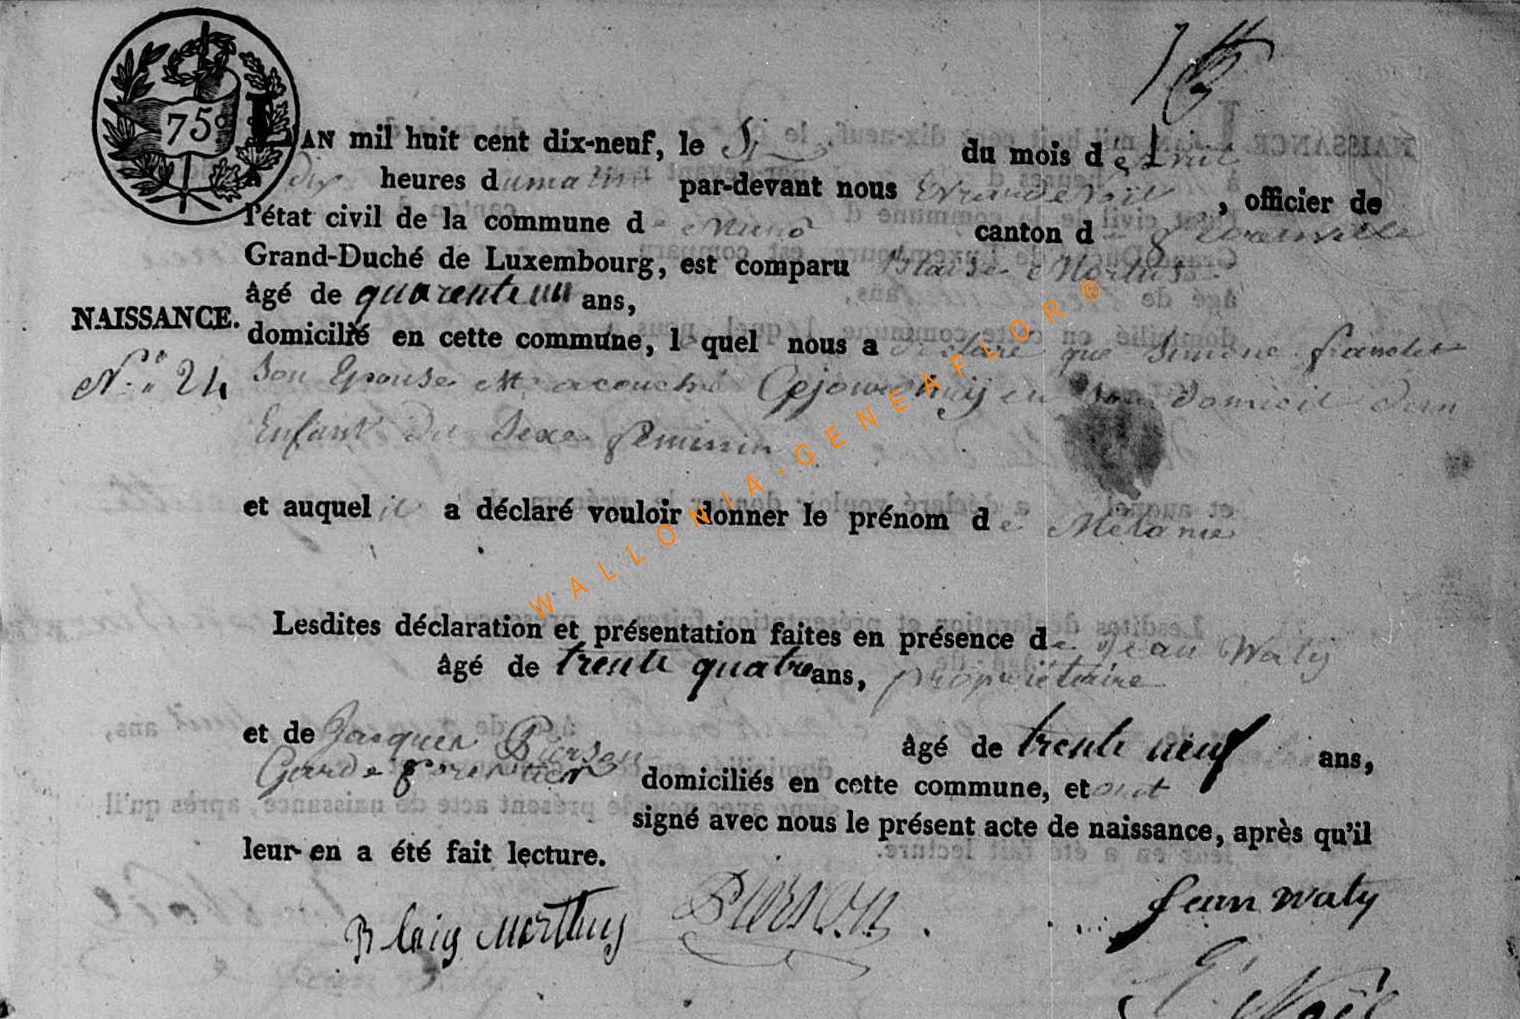 75c
L'AN mil huit cent dix-neuf, le Six du mois d'avril
à dix heures du matin par-devant nous Evrard Noël, officier de
l'état civil de la commune de Muno canton de florenville
Grand-Duché de Luxembourg, est comparu Blaise Mortus
âgé de quarente un ans,
NAISSANCE.
domicilié en cette commune, l quel nous a déclaré que Simone franclet
N.° 24
Son Epouse est acouché Cejourdhuij en Son domicil dun
Enfant du Sexe féminin
et auquel il a déclaré vouloir donner le prénom de Melanie
Lesdites déclaration et présentation faites en présence de Jean Waty
âgé de trente quatre ans, propriétaire
et de Jacques Pierson âgé de trente neuf ans,
Garde forestier domiciliés en cette commune, et ont
signé avec nous le présent acte de naissance, après qu'il
leur en a été fait lecture.
Blaig Morthuy Pierson Jean Waty
E. Noël
WALLONIA-GENEAFLOR®